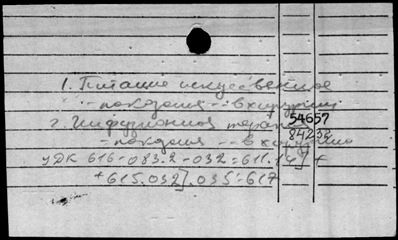 1. Питание искусственное
-- показания -- в хирургии
54657
2. Инфузионная терапия
84232
-- показания -- в хирургии
УДК 616-083.2-032:611.14] +
+615.032].035:617